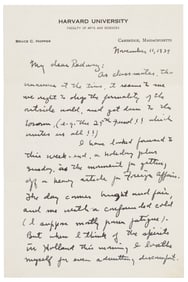 HARVARD UNIVERSITY
FACULTY OF ARTS AND SCIENCES
BRUCE C. HOPPER
CAMBRIDGE, MASSACHUSETTS
November 11, 1939
My dear Redway:
As classmates, the
of the time, it seems to me
we might to drop the formality of the
outside world, and get down to the
(e.g. the 25th proof!) which
unites us all!!)
I have looked forward to
this week-end, a holiday plus
Sunday, as the moment for getting
off a heavy article for Foreign Affairs.
The day comes bright and fair,
and me with a confounded cold
(I suppose math paper fatigue).
But when I think of the spirits
in Holland this morning I loathe
myself for even admitting discomfort.